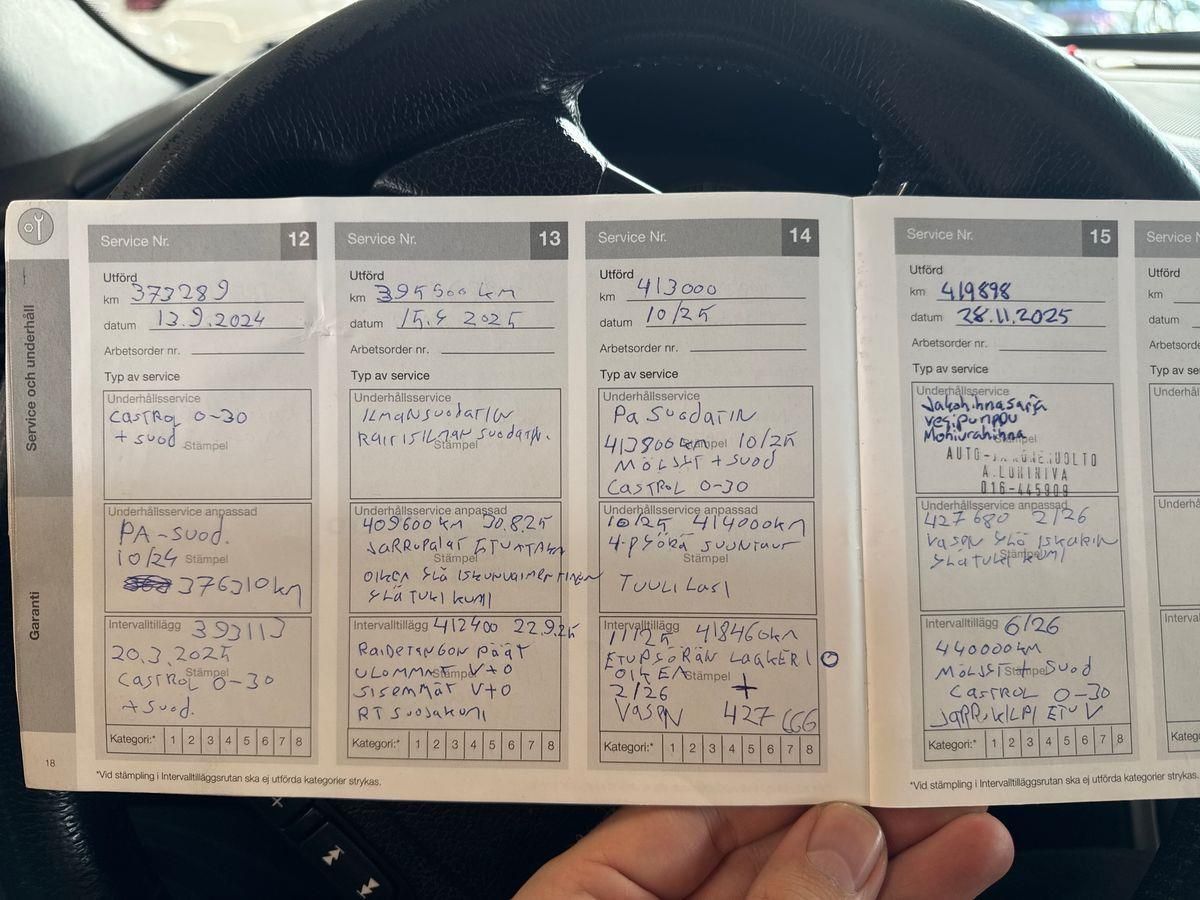 Service och underhåll
Garanti
18
Service Nr. 12
Utförd
km 373289
datum 13.9.2024
Arbetsorder nr.
Typ av service
Underhållsservice
CASTROL 0-30
+ SUOD
Stämpel
Underhållsservice anpassad
PA-SUOD.
10/24
Stämpel
376310 km
Intervalltillägg 393113
20.3.2025
Stämpel
CASTROL 0-30
+ SUOD.
Kategori:* 1 2 3 4 5 6 7 8
Service Nr. 13
Utförd
km 395500 km
datum 15.4 2025
Arbetsorder nr.
Typ av service
Underhållsservice
ILMANSUODATIN
RAITISILMAN SUODATIN.
Stämpel
Underhållsservice anpassad
409600 km 30.8.25
JARRUPALAT ETU+TAKA
Stämpel
OIKEA YLÄ ISKUNVAIMENTIMEN
YLÄTUKIKUMI
Intervalltillägg 412400 22.9.25
RAIDETANGON PÄÄT
ULOMMAT V+O
Stämpel
SISEMMÄT V+O
RT SUOJAKUMI
Kategori:* 1 2 3 4 5 6 7 8
Service Nr. 14
Utförd
km 413000
datum 10/25
Arbetsorder nr.
Typ av service
Underhållsservice
PA SUODATIN
413800 km 10/25
Stämpel
MÖLJYT + SUOD
CASTROL 0-30
Underhållsservice anpassad
10/25 414000 km
4-PYÖRÄ SUUNTAUS
Stämpel
TUULILASI
Intervalltillägg
11/25 418460 km
ETUPYÖRÄN LAAKERI O
OIKEA
Stämpel
2/26 +
VASEN 427
Kategori:* 1 2 3 4 5 6 7 8
*Vid stämpling i Intervalltilläggsrutan ska ej utförda kategorier strykas.
Service Nr. 15
Utförd
km 419898
datum 28.11.2025
Arbetsorder nr.
Typ av service
Underhållsservice
Jakohihnasarja
vesipumppu
Moniurahihna
Stämpel
AUTO- JA KONEHUOLTO
A.LUMINIVA
016-445909
Underhållsservice anpassad
427680 2/26
VASEN YLÄ ISKARIN
YLÄTUKIKUMI
Stämpel
Intervalltillägg 6/26
440000 KM
MÖLJYT + SUOD
Stämpel
CASTROL 0-30
JARRUKILPI ETU V
Kategori:* 1 2 3 4 5 6 7 8
*Vid stämpling i Intervalltilläggsrutan ska ej utförda kategorier strykas.
Service N
Utförd
km
datum
Arbetsorde
Typ av se
Underhåll
Underhåll
Interva
Kateg